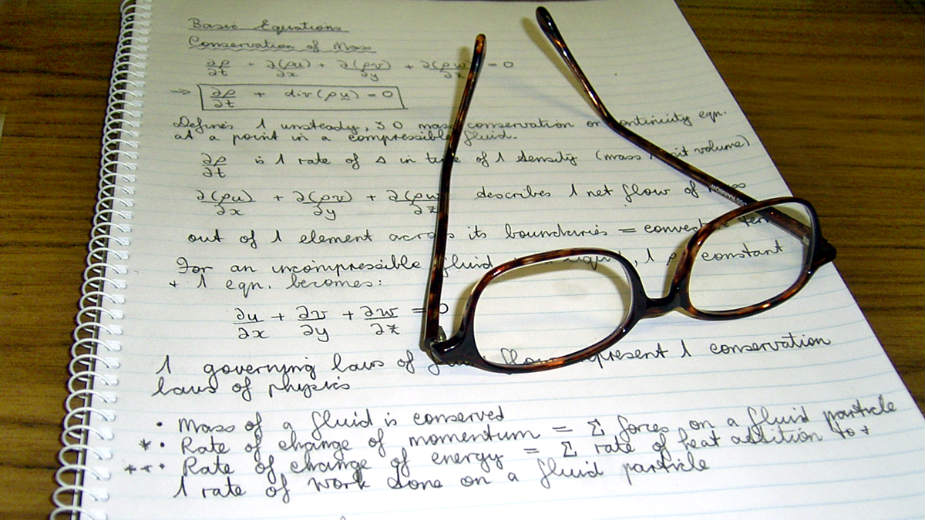 Basic Equations
Conservation of Mass
∂ρ/∂t + ∂(ρu)/∂x + ∂(ρv)/∂y + ∂(ρw)/∂z = 0
→ ∂ρ/∂t + div(ρu) = 0
Defines 1 unsteady, 3D mass conservation or continuity eqn.
at a point in a compressible fluid.
∂ρ/∂t is 1 rate of Δ in time of 1 density (mass / unit volume)
∂(ρu)/∂x + ∂(ρv)/∂y + ∂(ρw)/∂z describes 1 net flow of mass
out of 1 element across its boundaries =
For an incompressible fluid 1 ρ constant
+ 1 eqn. becomes:
∂u/∂x + ∂v/∂y + ∂w/∂z = 0
1 governing laws of flow 1 conservation
laws of physics
• Mass of a fluid is conserved
*• Rate of change of momentum = Σ forces on a fluid particle
**• Rate of change of energy = Σ rate of heat addition to +
1 rate of work done on a fluid particle